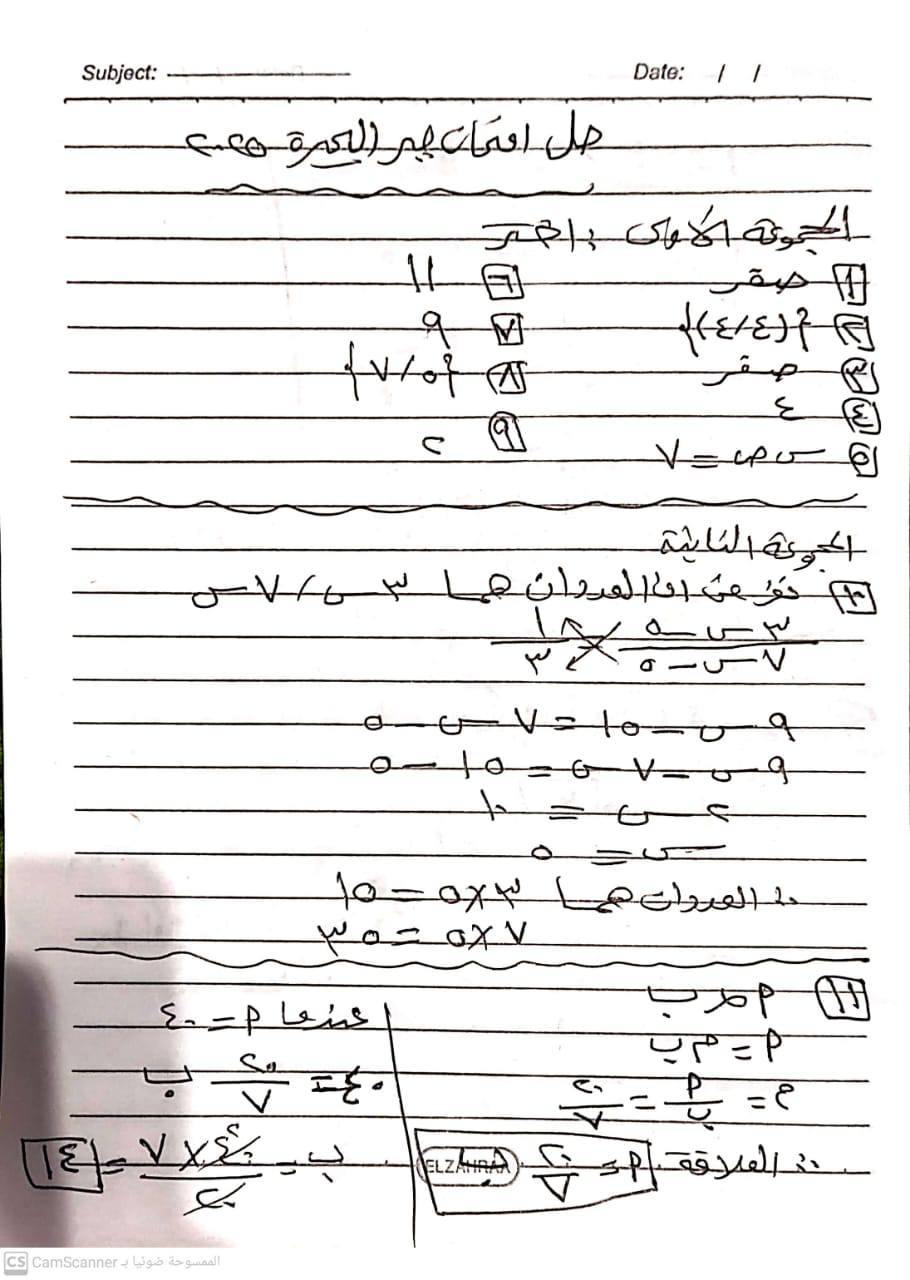 Subject: Date: / /
حل امتحان جبر البحيرة ٢٠٢٥
المجموعة الأولى : اختر
١ صفر
٢ {(٤،٤)}
٣ صفر
٤ ٤
٥ س ص = ٧
٦ ١١
٧ ٩
٨ {٥،٧}
٩ ٢
المجموعة الثانية
١٠ نفرض أن العددان هما ٣س ، ٧س
٣س - ٥ / ٧س - ٥ = ١ / ٣
٩س - ١٥ = ٧س - ٥
٩س - ٧س = ١٥ - ٥
٢س = ١٠
س = ٥
∴ العددان هما ٣×٥ = ١٥
٧×٥ = ٣٥
١١ P ∝ ب
P = م ب
م = P / ب = ٢٠ / ٧
∴ العلاقة P = ٢٠ / ٧ ب
ELZAHRAA
عندما P = ٤٠
٤٠ = ٢٠ / ٧ ب
ب = ٤٠ × ٧ / ٢٠ = ١٤
CS CamScanner الممسوحة ضوئيا بـ